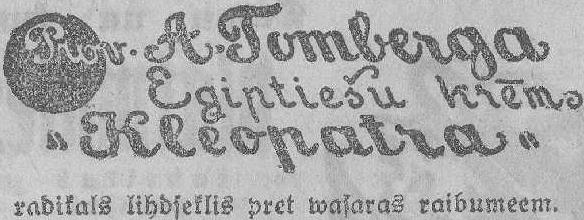 Prov. A. Tomberga
Egiptiešu krēms
"Kleopatra"
radikals lihdſeklis pret waſaras raibumeem.